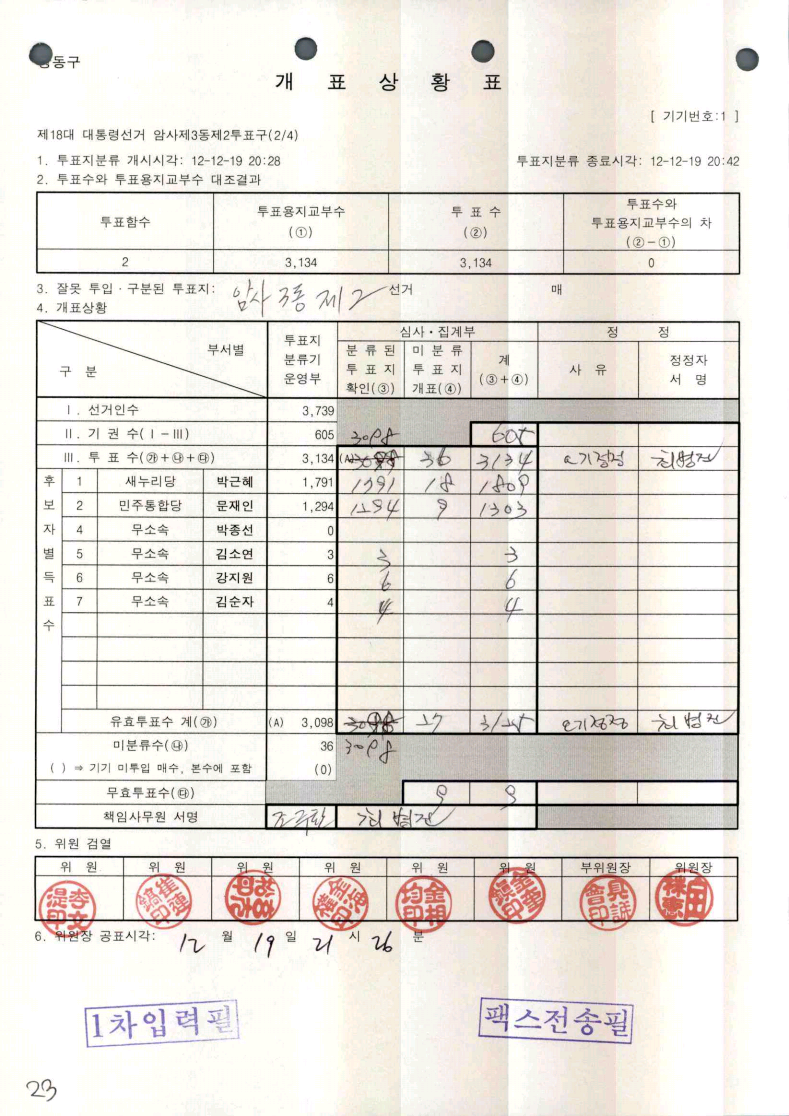 강동구
개 표 상 황 표
[ 기기번호:1 ]
제18대 대통령선거 암사제3동제2투표구(2/4)
1. 투표지분류 개시시각: 12-12-19 20:28 투표지분류 종료시각: 12-12-19 20:42
2. 투표수와 투표용지교부수 대조결과
투표함수 투표용지교부수 (①) 투 표 수 (②) 투표수와 투표용지교부수의 차 (②-①)
2 3,134 3,134 0
3. 잘못 투입·구분된 투표지: 암사 3동 제2 선거 매
4. 개표상황
구 분 부서별 투표지 분류기 운영부 심사·집계부 정 정
분 류 된 투 표 지 확인(③) 미 분 류 투 표 지 개표(④) 계 (③+④) 사 유 정정자 서 명
Ⅰ. 선거인수 3,739
Ⅱ. 기 권 수(Ⅰ-Ⅲ) 605 3098 605
Ⅲ. 투 표 수(㉮+㉯+㉰) 3,134 (A) 36 3134 오기정정 최병진
후보자별득표수
1 새누리당 박근혜 1,791 1791 18 1809
2 민주통합당 문재인 1,294 1294 9 1303
4 무소속 박종선 0
5 무소속 김소연 3 3 3
6 무소속 강지원 6 6 6
7 무소속 김순자 4 4 4
유효투표수 계(㉮) (A) 3,098 27 3125 오기정정 최병진
미분류수(㉯) 36 3098
( ) ⇒ 기기 미투입 매수, 본수에 포함 (0)
무효투표수(㉰) 9 9
책임사무원 서명 최병진
5. 위원 검열
위 원 위 원 위 원 위 원 위 원 위 원 부위원장 위원장
6. 위원장 공표시각: 12 월 19 일 21 시 26 분
1차입력필
팩스전송필
23